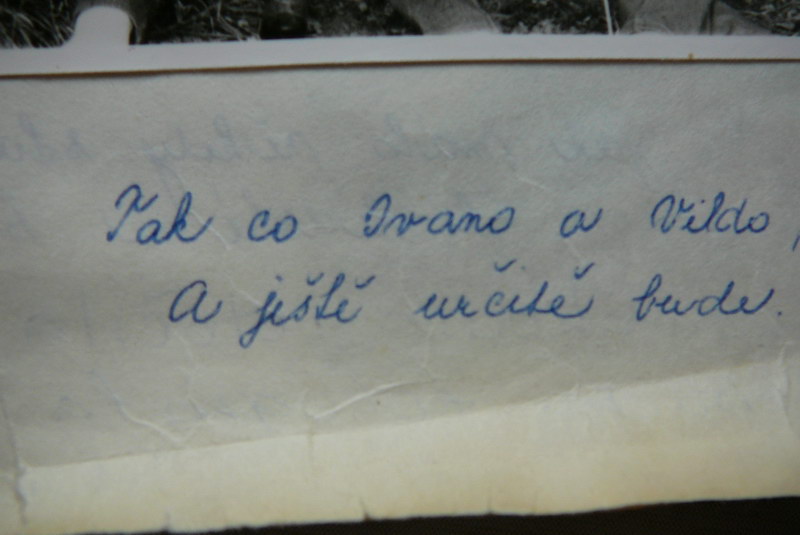 Tak co Ivano a Vildo,
A jistě určitě bude.